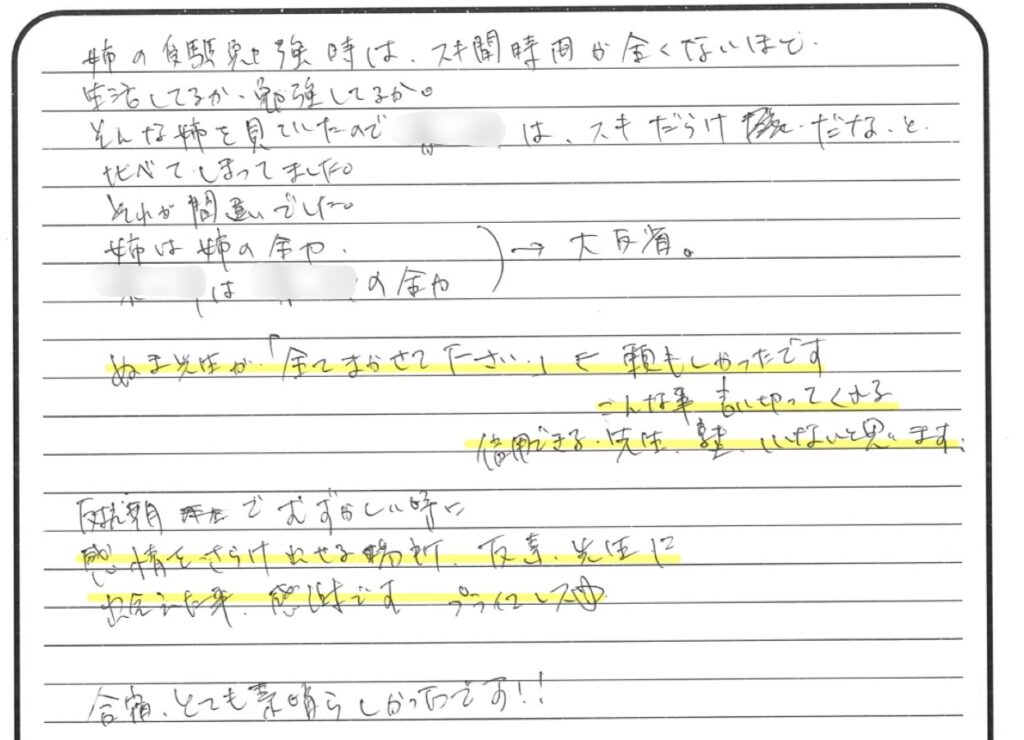 姉の受験勉強時は、スキ間時間が全くないほど.
生活してるか、勉強してるか。
そんな姉を見ていたので は、スキだらけ だな、と
比べてしまってました。
それが間違いでした。
姉は姉の全力.
は の全力
→ 大反省。
ぬま先生が、「全てまかせて下さい」と 頼もしかったです
こんな事 言い切ってくれる
信用できる、先生、塾、いないと思います、
反抗期 でむずかしい時に
感情をさらけ出せる場所、友達、先生に
出会えた事、感謝です プライスレス
合宿、とても素晴らしかったです!!